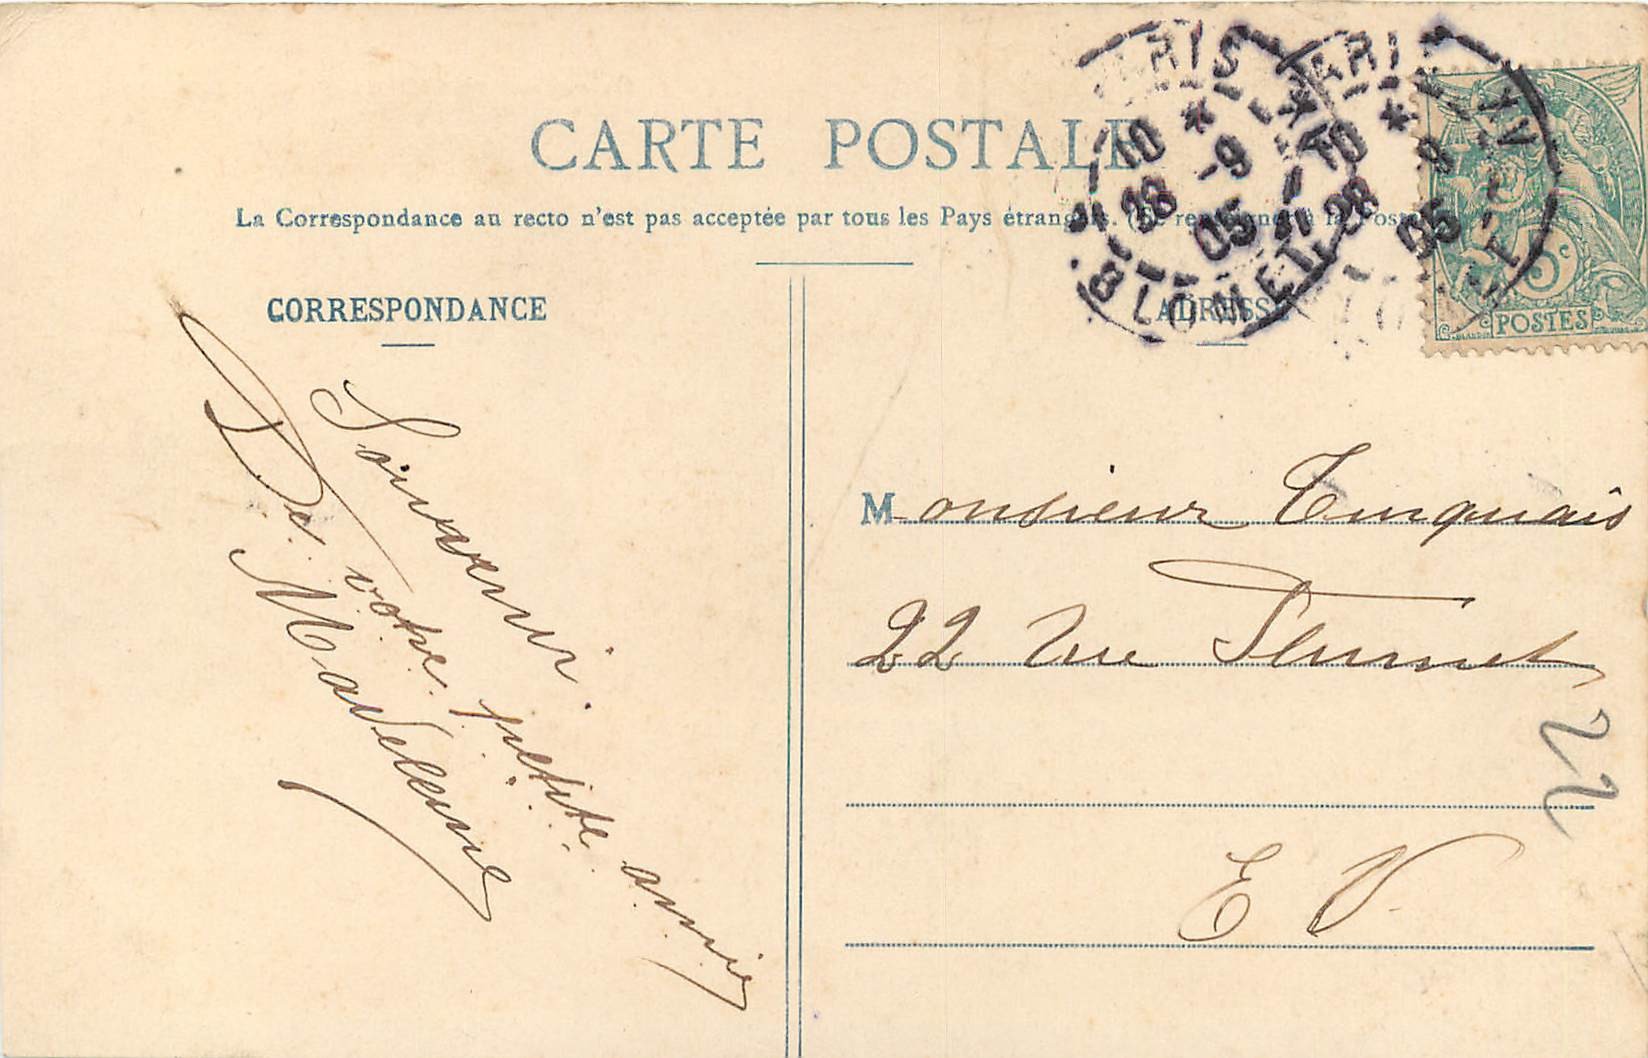 CARTE POSTALE
La Correspondance au recto n'est pas acceptée par tous les Pays étrangers. (Se renseigner à la Poste
CORRESPONDANCE
ADRESSE
Souvenir
De votre petite amie
Madeleine
Monsieur
22 rue
22
E V.
PARIS XV
10 * 28 -9 05
R. BLOMET
PARIS XV
10 * 28 -9 05
5c
POSTES